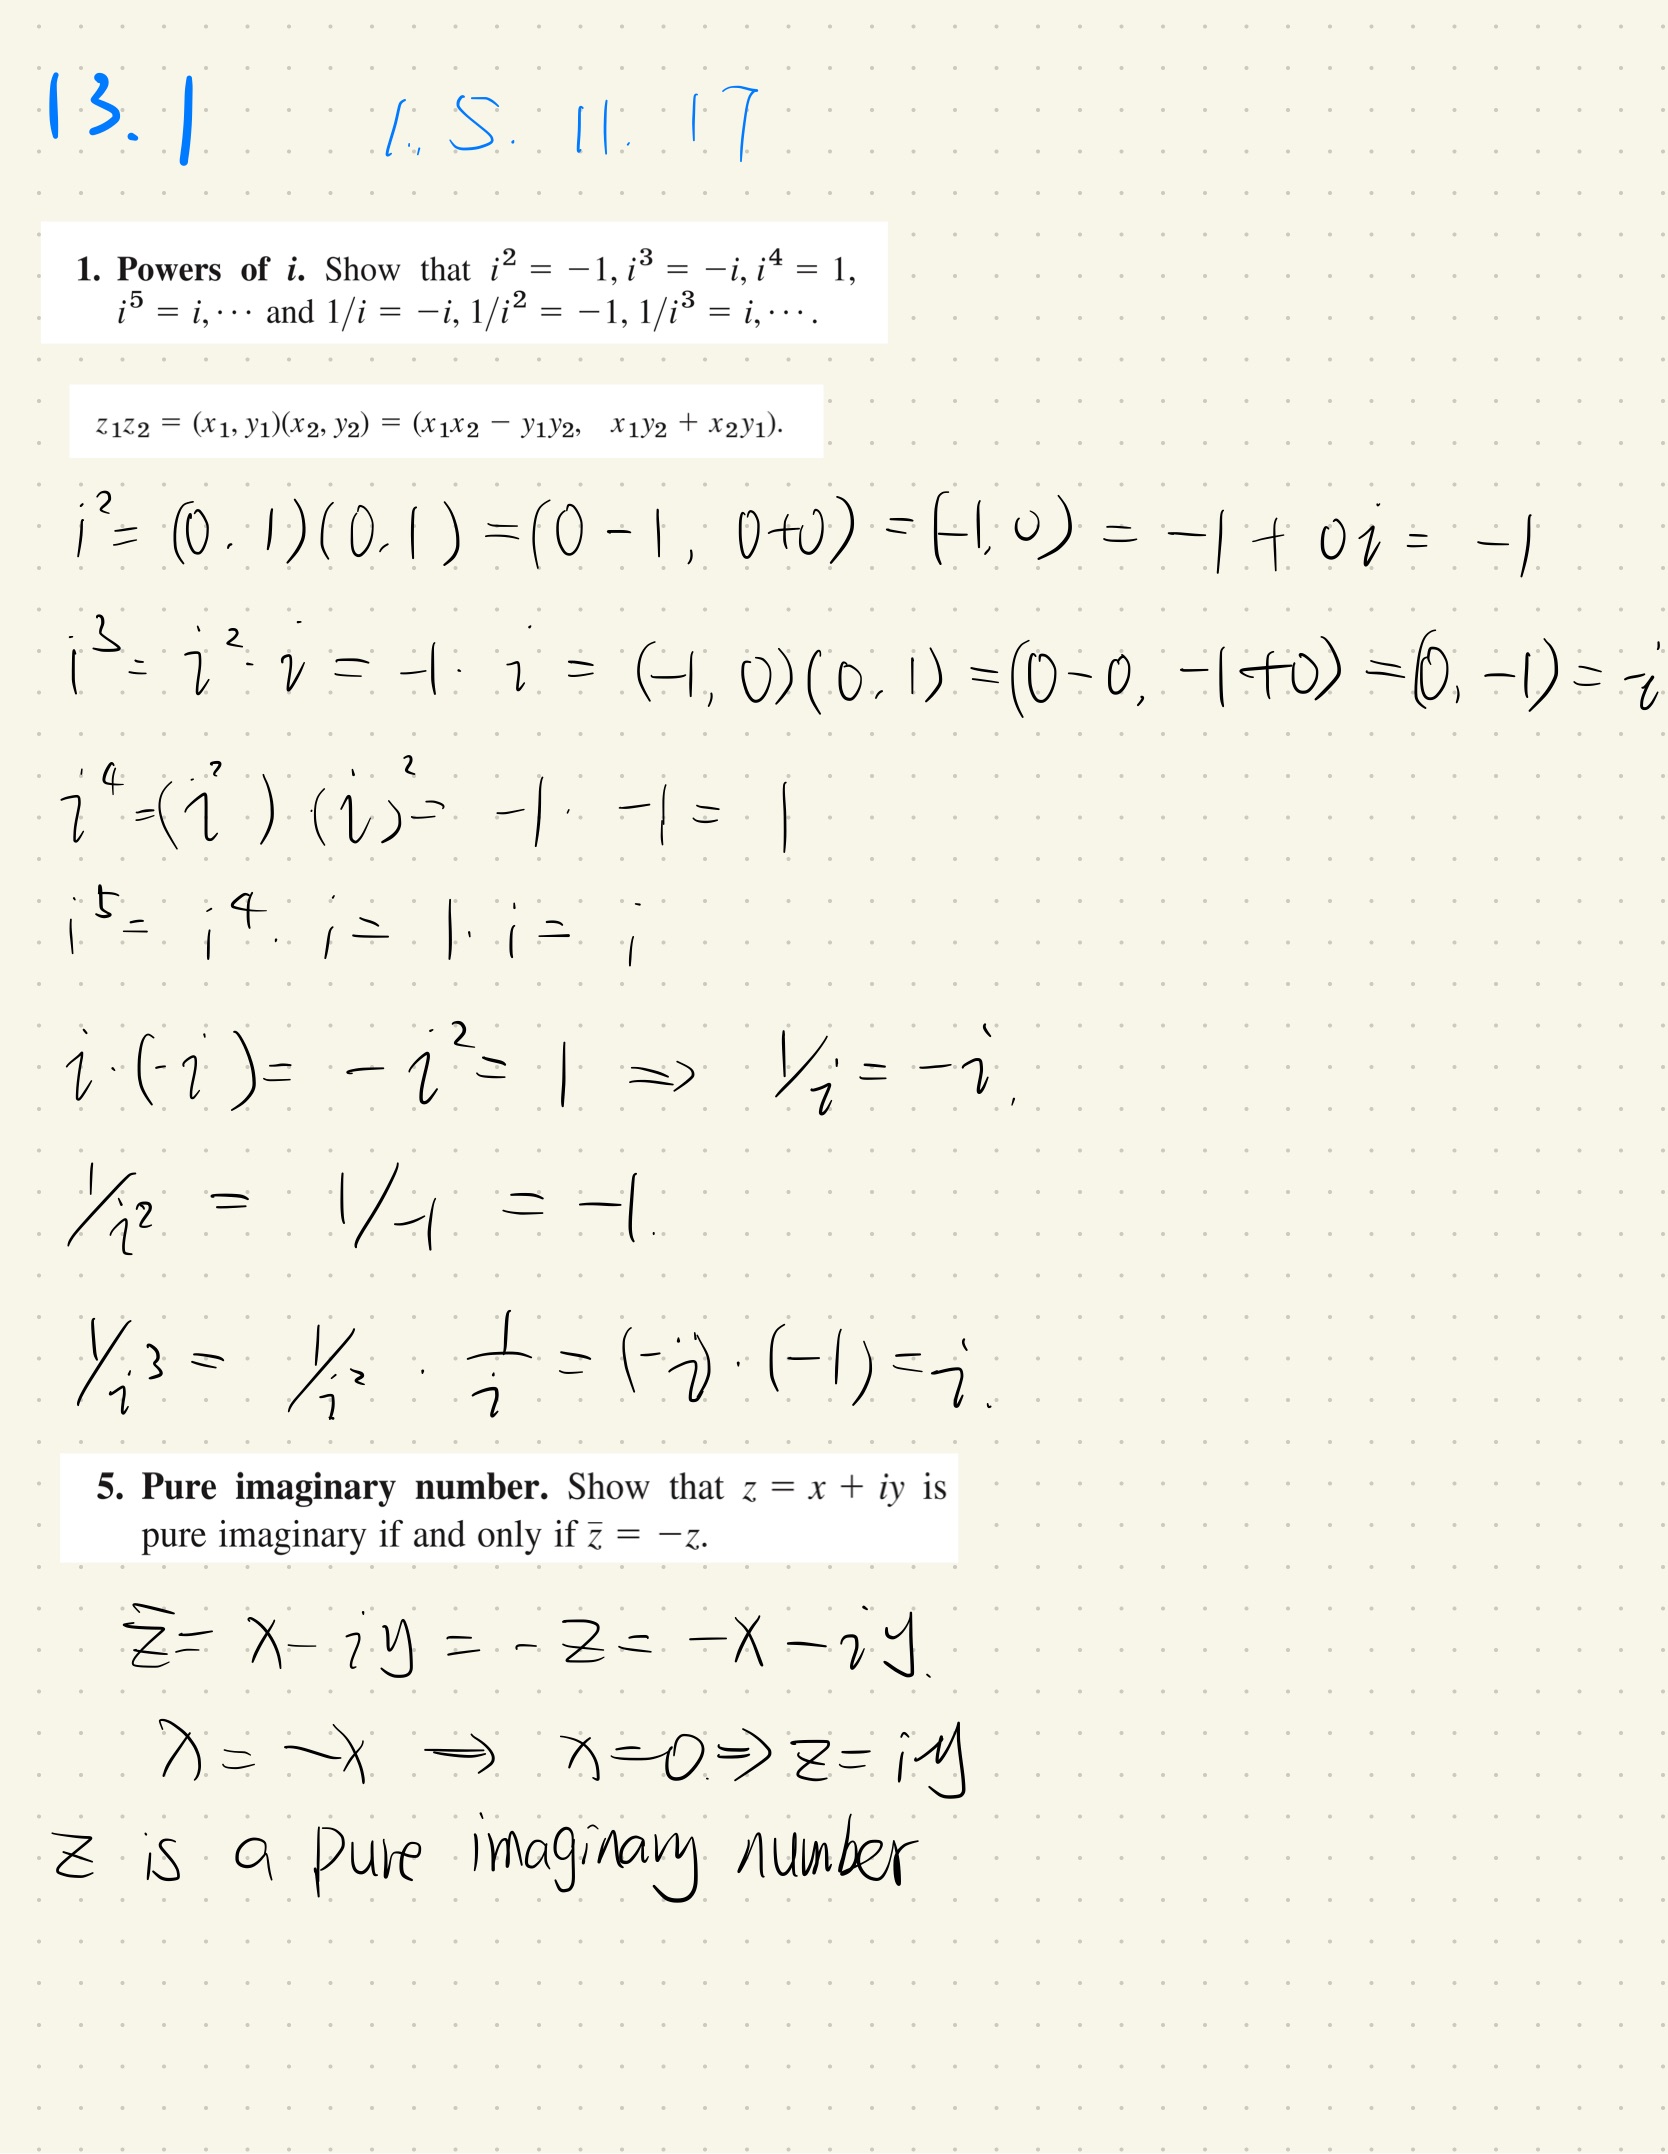 13.1 1., 5. 11. 17
1. Powers of i. Show that i² = −1, i³ = −i, i⁴ = 1,
i⁵ = i, ⋯ and 1/i = −i, 1/i² = −1, 1/i³ = i, ⋯.
z₁z₂ = (x₁, y₁)(x₂, y₂) = (x₁x₂ − y₁y₂, x₁y₂ + x₂y₁).
i² = (0, 1)(0, 1) = (0 − 1, 0+0) = (−1, 0) = −1 + 0i = −1
i³ = i² · i = −1 · i = (−1, 0)(0, 1) = (0 − 0, −1+0) = (0, −1) = −i
i⁴ = (i²) (i)² = −1 · −1 = 1
i⁵ = i⁴ · i = 1 · i = i
i · (−i) = − i² = 1 ⇒ 1/i = −i.
1/i² = 1/−1 = −1.
1/i³ = 1/i² · 1/i = (−i) · (−1) = i.
5. Pure imaginary number. Show that z = x + iy is
pure imaginary if and only if z̄ = −z.
z̄ = x − iy = − z = −x − iy.
x = −x ⇒ x = 0. ⇒ z = iy
z is a pure imaginary number